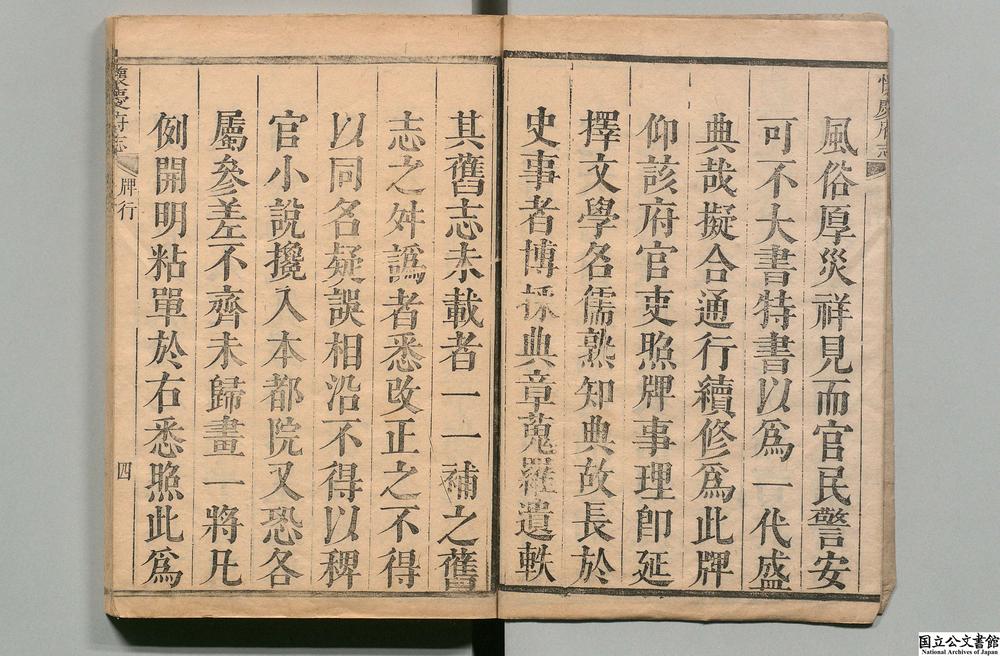 風俗厚災祥見而官民警安
可不大書特書以爲一代盛
典哉擬合通行續修爲此牌
仰該府官吏照牌事理卽延
擇文學名儒熟知典故長於
史事者博採典章蒐羅遺軼
其舊志未載者一一補之舊
志之舛譌者悉改正之不得
以同名疑誤相沿不得以稗
官小說攙入本都院又恐各
屬參差不齊未歸畫一將凡
例開明粘單於右悉照此爲
懷慶府志
牌行
四
国立公文書館
National Archives of Japan